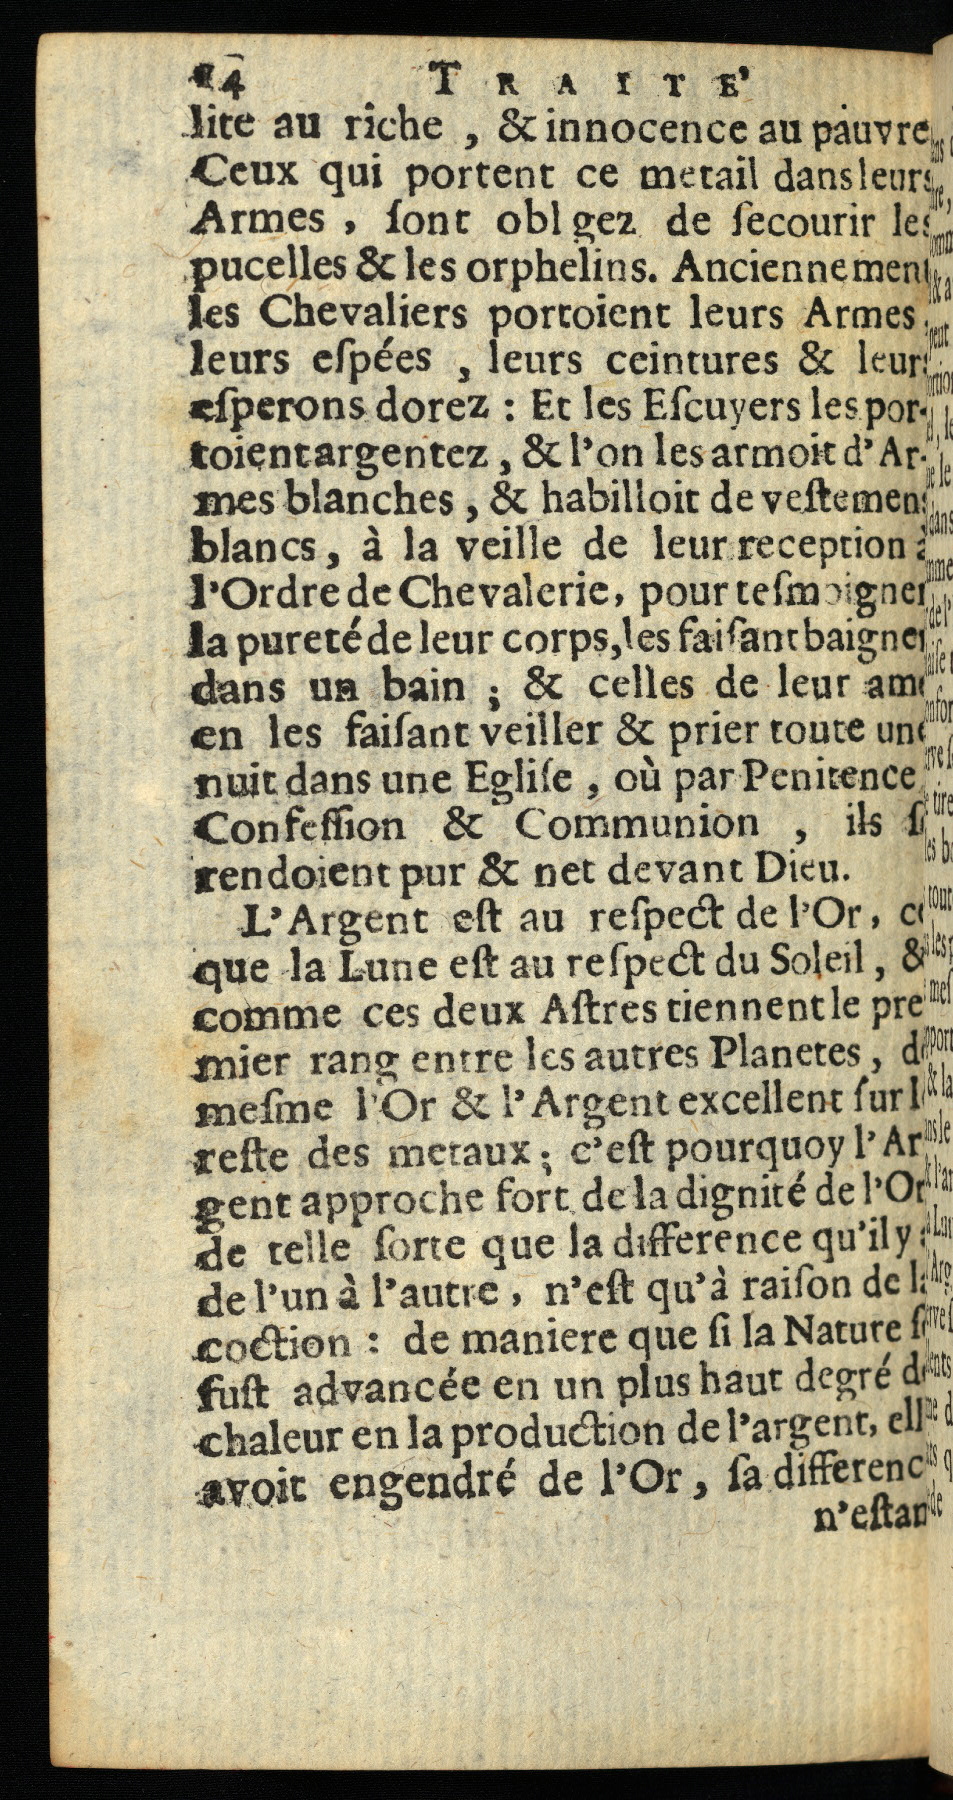 24 TRAITE'
lite au riche , & innocence au pauvre
Ceux qui portent ce metail dans leurs
Armes , ſont obl gez de ſecourir les
pucelles & les orphelins. Anciennement
les Chevaliers portoient leurs Armes,
leurs eſpées , leurs ceintures & leurs
eſperons dorez : Et les Eſcuyers les por-
toient argentez , & l'on les armoit d'Ar-
mes blanches , & habilloit de veſtemens
blancs, à la veille de leur reception à
l'Ordre de Chevalerie, pour teſmoigner
la pureté de leur corps, les faiſant baigner
dans un bain ; & celles de leur ame
en les faiſant veiller & prier toute une
nuit dans une Egliſe , où par Penitence
Confeſſion & Communion , ils ſ
rendoient pur & net devant Dieu.
L'Argent eſt au reſpect de l'Or, ce
que la Lune eſt au reſpect du Soleil , &
comme ces deux Aſtres tiennent le pre
mier rang entre les autres Planetes , de
meſme l'Or & l'Argent excellent ſur l
reſte des metaux ; c'eſt pourquoy l'Ar
gent approche fort de la dignité de l'Or
de telle ſorte que la difference qu'il y a
de l'un à l'autre , n'eſt qu'à raiſon de la
coction : de maniere que ſi la Nature ſe
fuſt advancée en un plus haut degré de
chaleur en la production de l'argent, ell
avoit engendré de l'Or , ſa differenc
n'eſtan